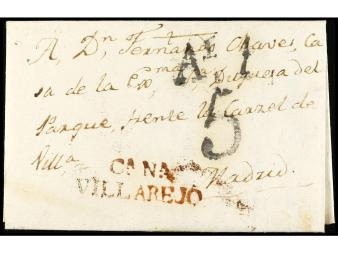 A Dn. Fernando Chaves, Ca
sa de la Exma. Sra. Duquesa del
Parque, frente la Carzel de
Villa
Madrid.
A 1
5
CANA
VILLAREJO